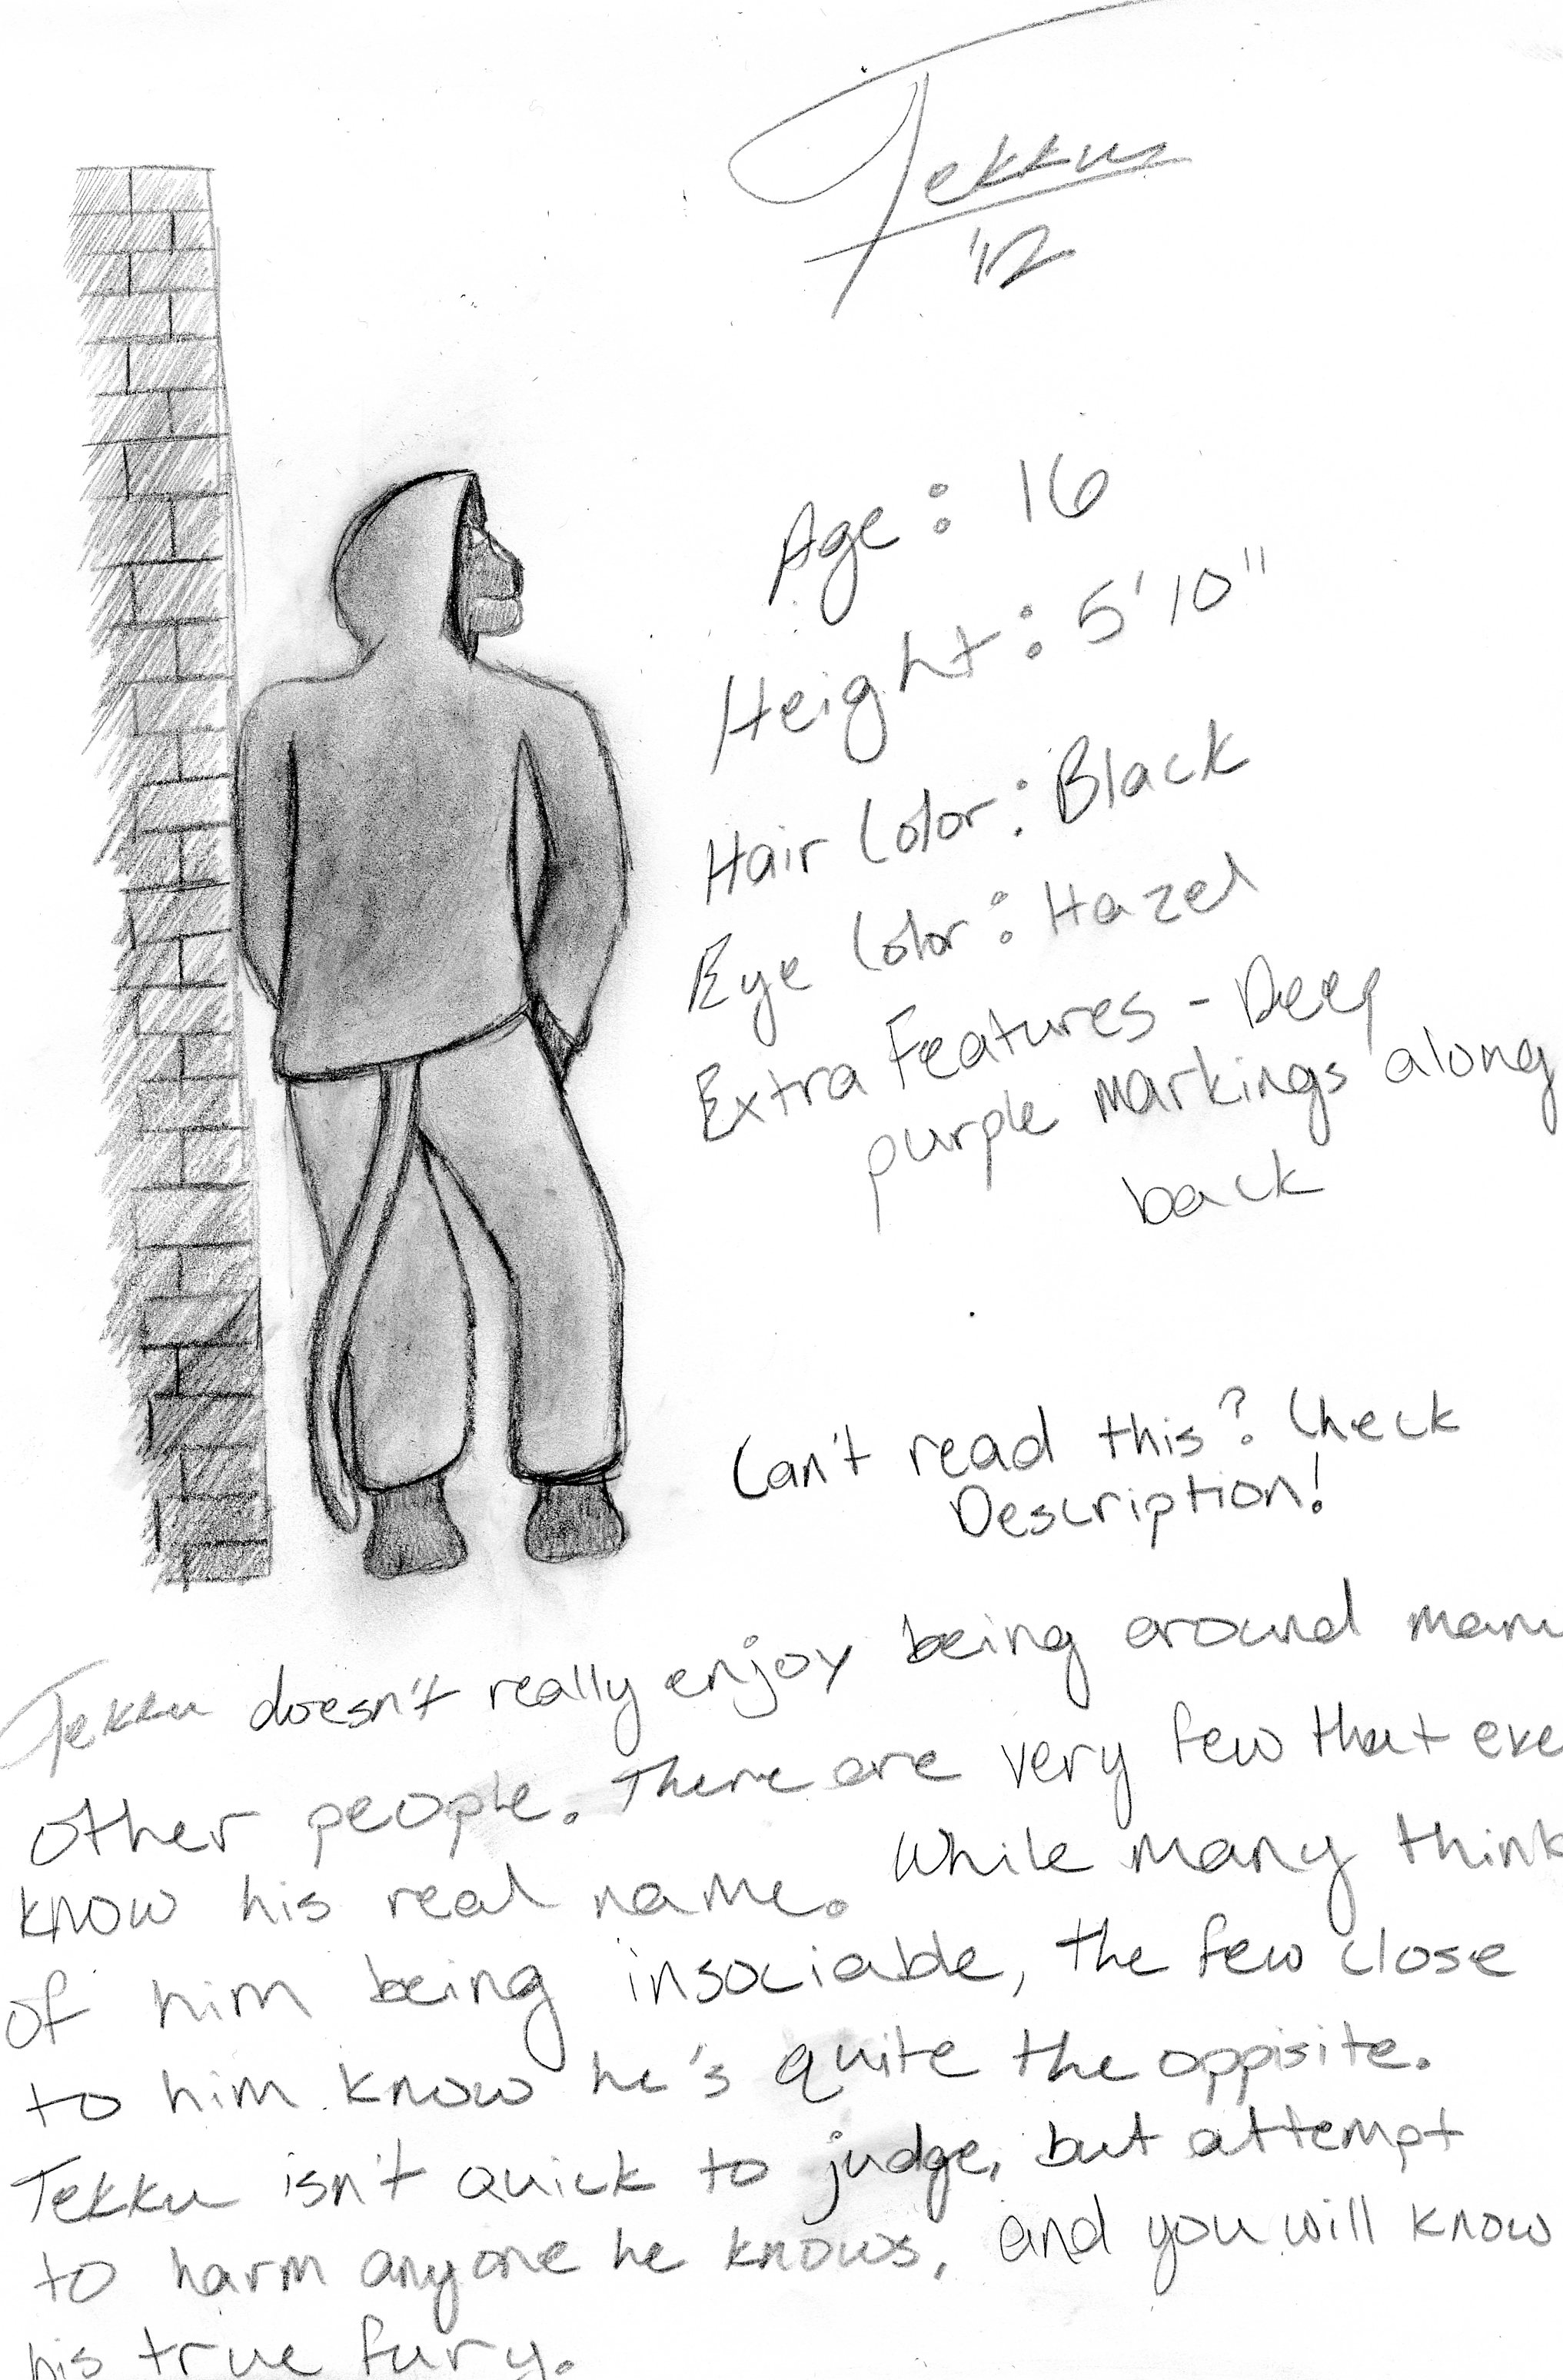 Tekku
'12
Age: 16
Height: 5'10"
Hair Color: Black
Eye Color: Hazel
Extra Features - Deep
purple markings along
back
Can't read this? Check
Description!
Tekku doesn't really enjoy being around many
other people. There are very few that even
know his real name. While many think
of him being insociable, the few close
to him know he's quite the oppisite.
Tekku isn't quick to judge, but attempt
to harm anyone he knows, and you will know
his true fury.